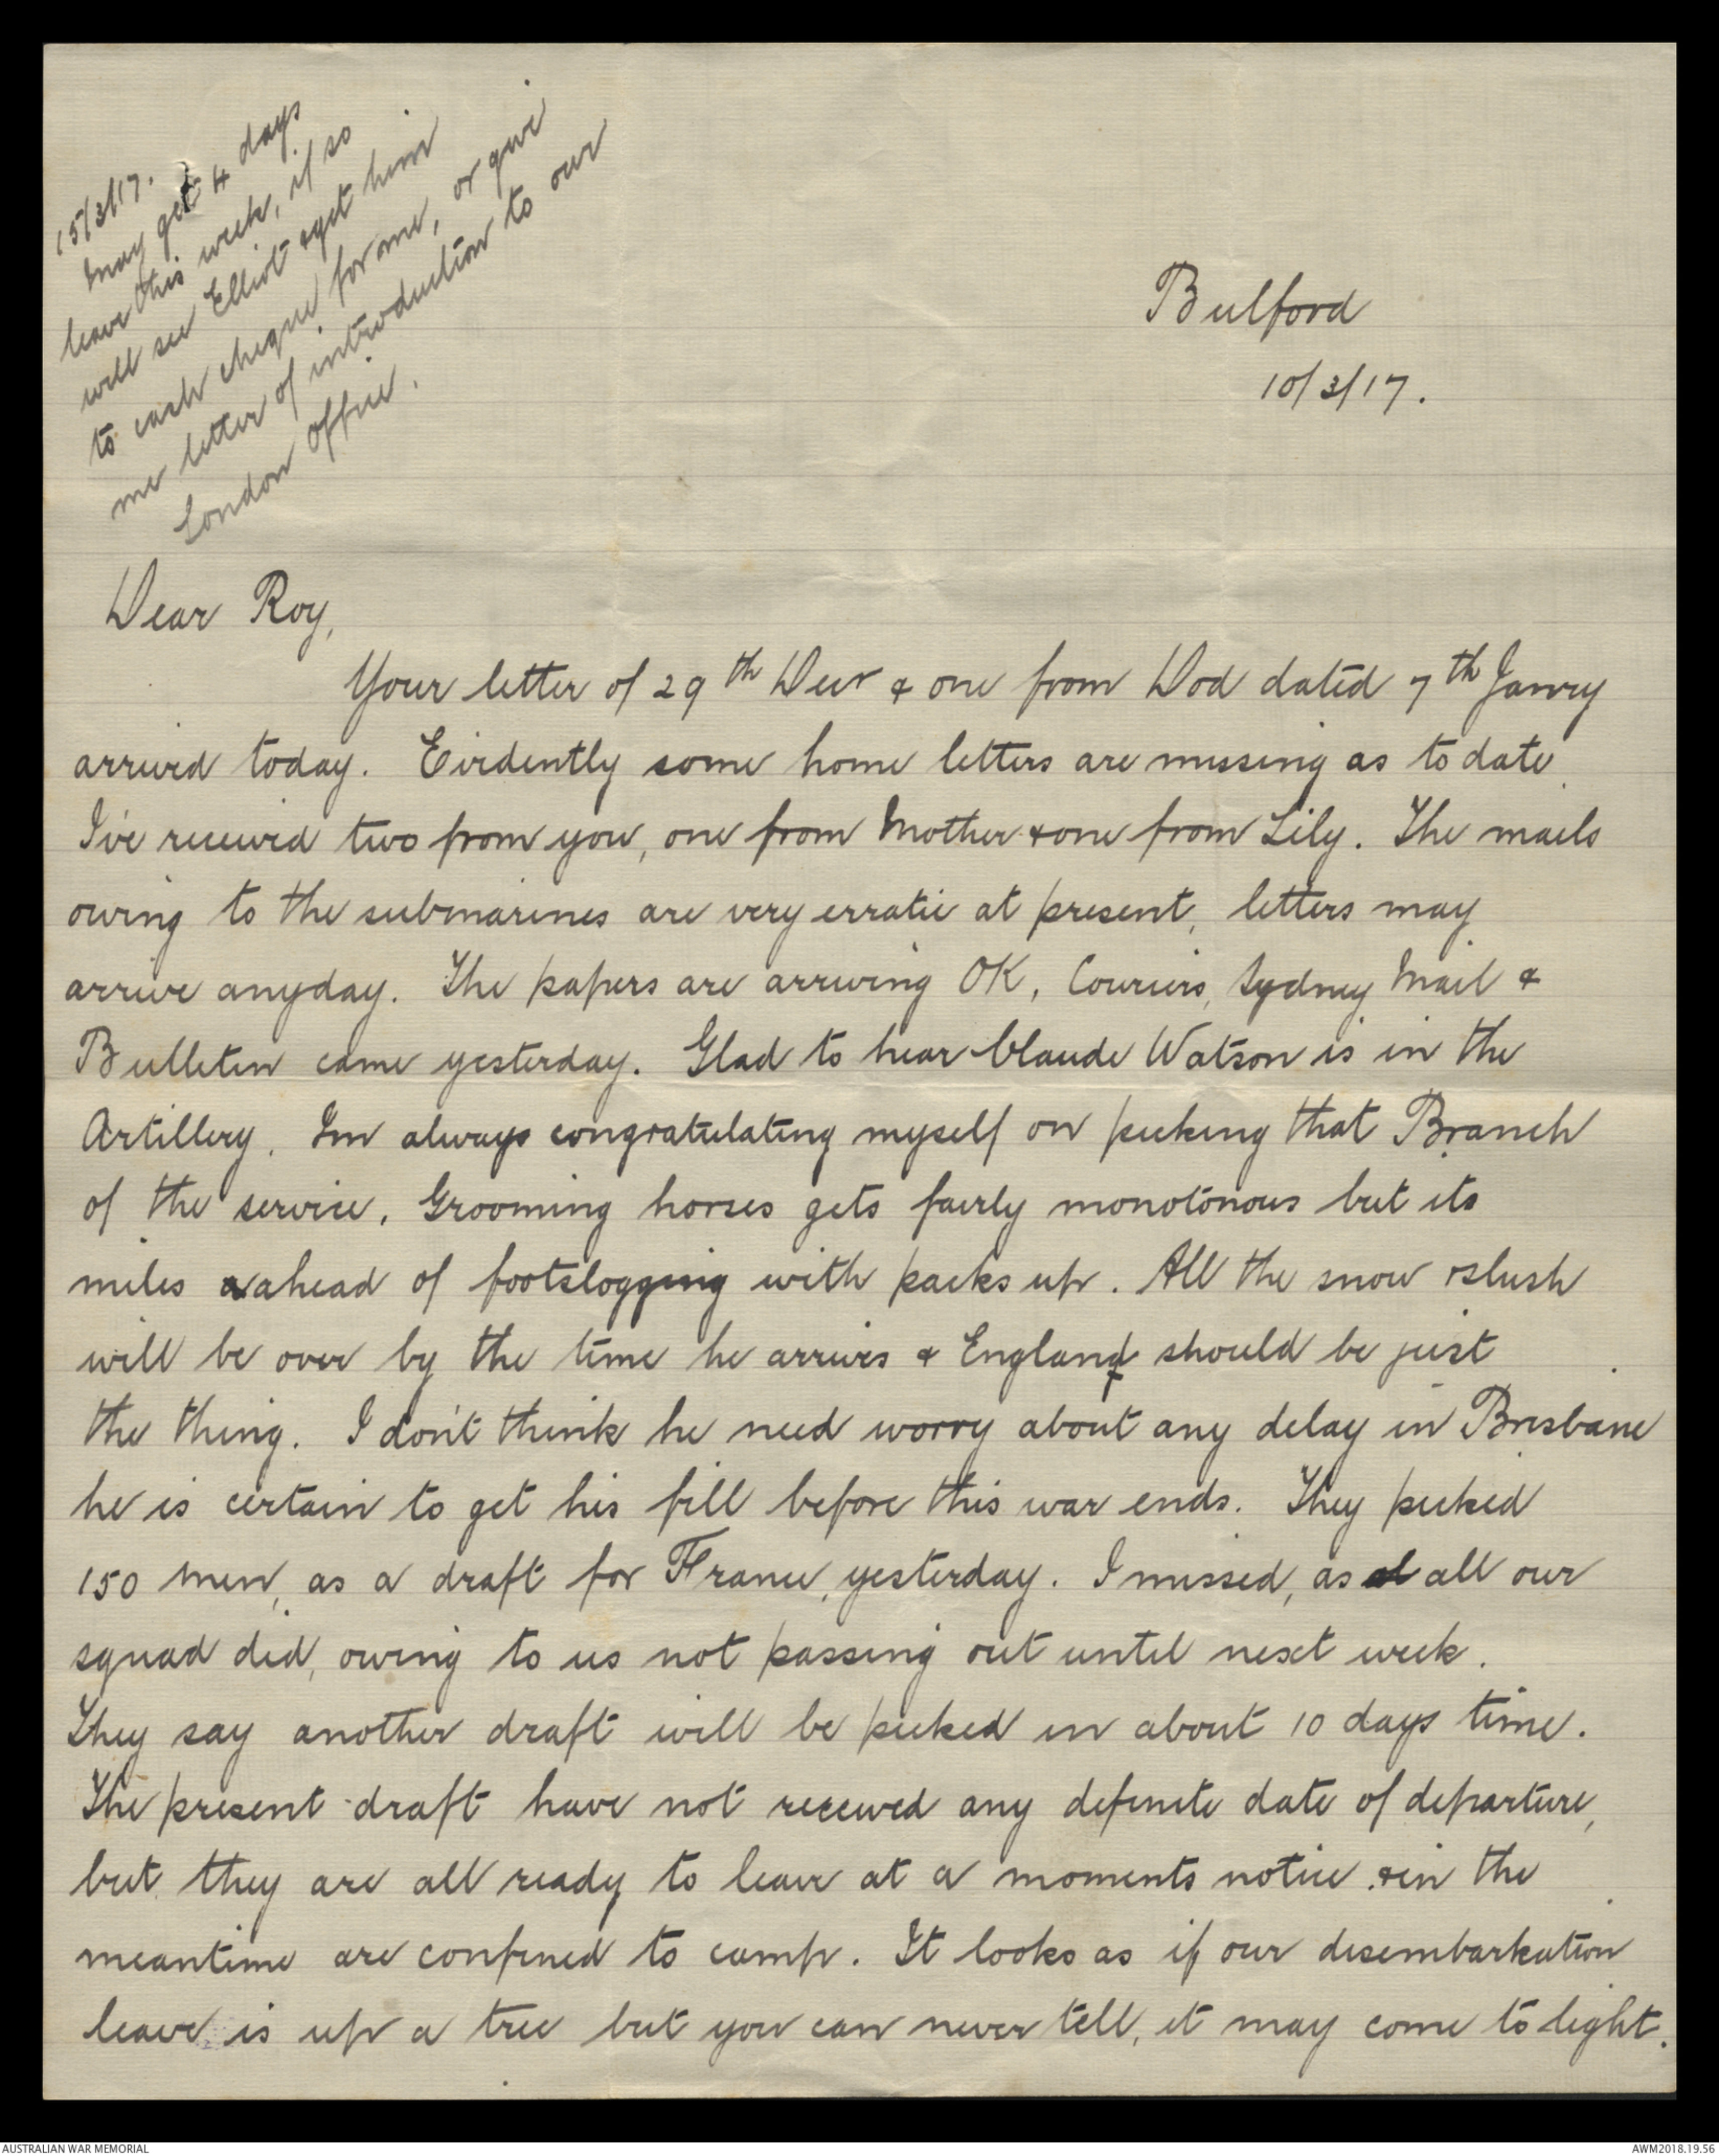 15/3/17.
May get 4 days
leave this week, if so
will see Elliot & get him
to cash cheque for me, or give
me letter of introduction to our
London office.
Bulford
10/3/17.
Dear Roy,
Your letter of 29th Decr & one from Dod dated 7th Janry
arrived today. Eirdently some home letters are missing as to date
I've received two from you, one from Mother & one from Lily. The mails
owing to the submarines are very erratic at present, letters may
arrive anyday. The papers are arriving OK, Couriers, Sydney Mail &
Bulletin came yesterday. Glad to hear Claude Watson is in the
Artillery. Im always congratulating myself on picking that Branch
of the service. Grooming horses gets fairly monotonous but its
miles ahead of footslogging with packs up. All the snow & slush
will be over by the time he arrives & England should be just
the thing. I don't think he need worry about any delay in Brisbane
he is certain to get his fill before this war ends. They picked
150 men, as a draft for France, yesterday. I missed, as all our
squad did, owing to us not passing out until next week.
They say another draft will be picked in about 10 days time.
The present draft have not received any definite date of departure,
but they are all ready to leave at a moments notice & in the
meantime are confined to camp. It looks as if our disembarkation
leave is up a tree but you can never tell, it may come to light.
AUSTRALIAN WAR MEMORIAL
AWM2018.19.56